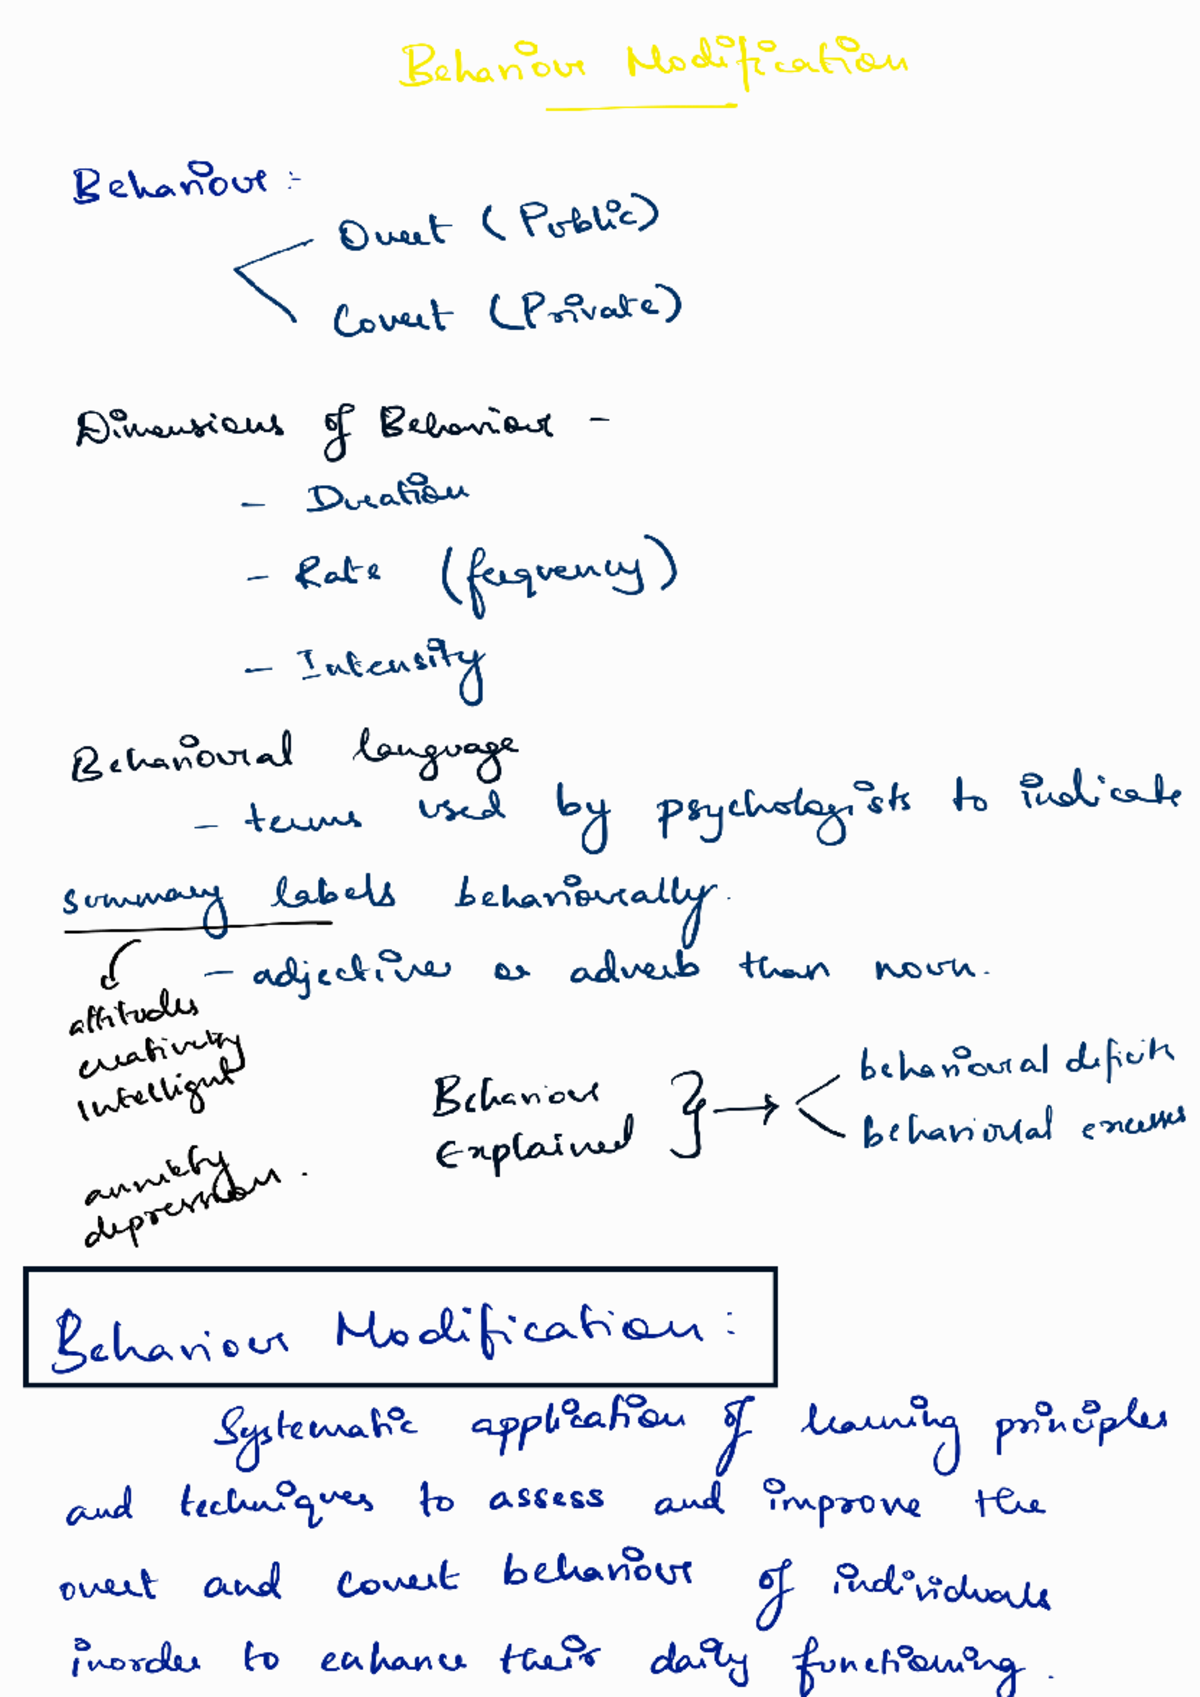 Behaviour Modification
Behaviour :-
Overt (Public)
Covert (Private)
Dimensions of Behaviour -
- Duration
- Rate (frequency)
- Intensity
Behavioural language
- terms used by psychologists to indicate
summary labels behaviourally.
- adjective or adverb than noun.
attitudes
creativity
Intelligent
anxiety
depression.
Behaviour
Explained } → behavioural deficits
behavioural excesses
Behaviour Modification :
Systematic application of learning principles
and techniques to assess and improve the
overt and covert behaviour of individuals
inorder to enhance their daily functioning.